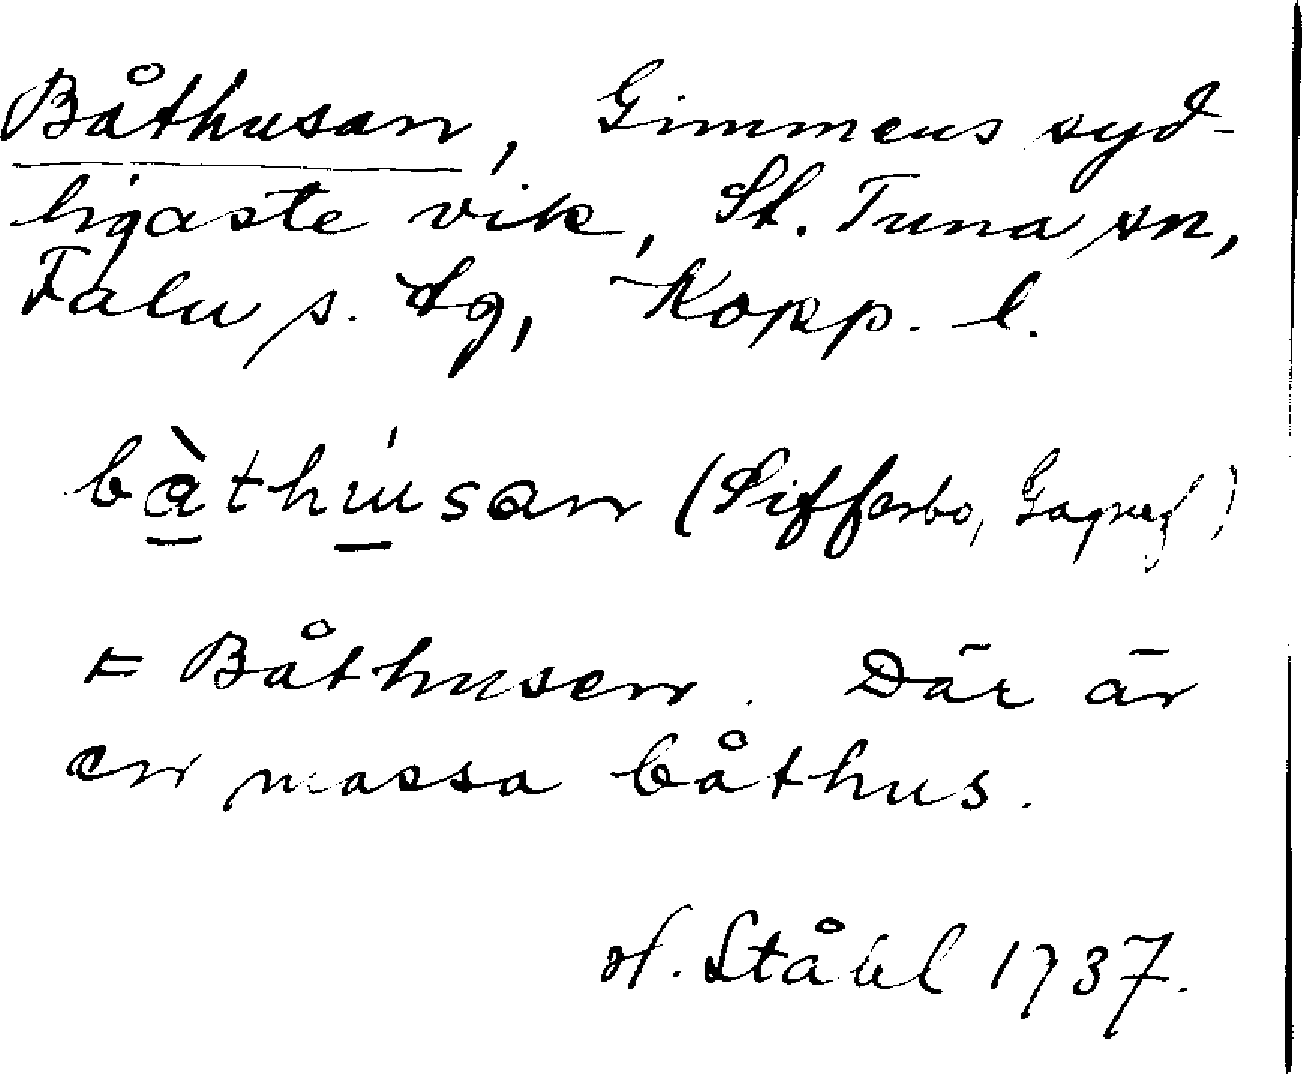 Båthusan, Gimmens syd-
ligaste vik, St. Tuna sn,
Falu s. dg, Kopp. l.
bàthúsan (Sifferbo, Gagnef)
= Båthusen. Där är
en massa båthus.
H. Ståhl 1937.